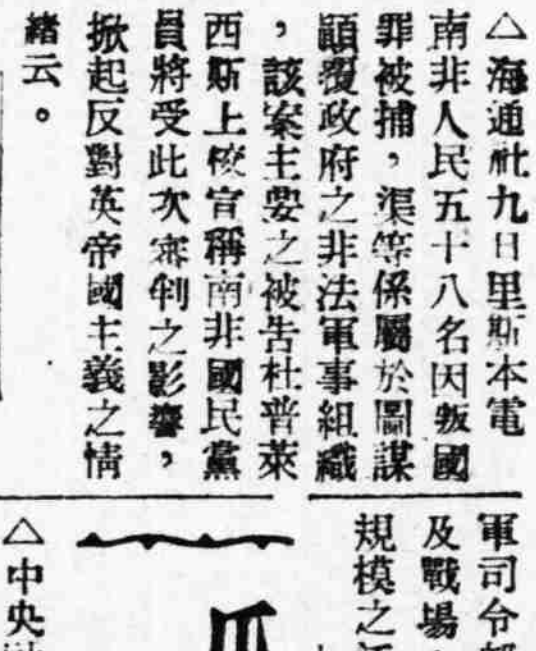 △海通社九日里斯本電
南非人民五十八名因叛國
罪被捕，渠等係屬於圖謀
顚覆政府之非法軍事組織
，該案主要之被告杜普萊
西斯上校官稱南非國民黨
員將受此次審判之影響，
掀起反對英帝國主義之情
緒云。
軍司令部
及戰場
規模之
△中央社